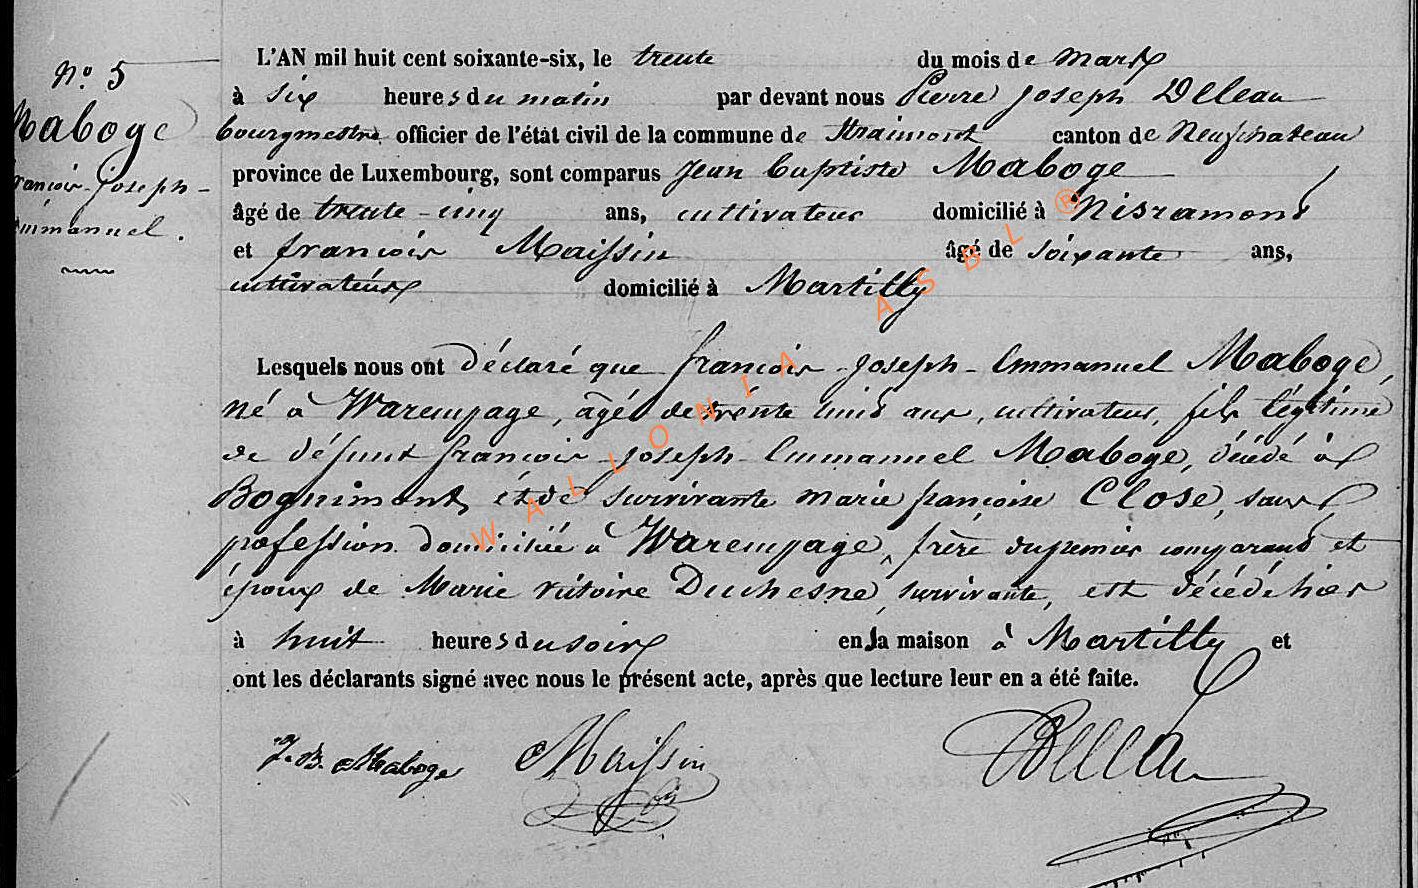 N.º 5
Maboge
françois-joseph-
Emmanuel.
L'AN mil huit cent soixante-six, le trente du mois de mars
à six heures du matin par devant nous Pierre Joseph Deleau
bourgmestre officier de l'état civil de la commune de Straimont canton de Neufchateau
province de Luxembourg, sont comparus Jean Baptiste Maboge
âgé de trente-cinq ans, cultivateur domicilié à Nisramont
et françois Maissin âgé de soixante ans,
cultivateur domicilié à Martilly
Lesquels nous ont déclaré que françois-Joseph-Emmanuel Maboge,
né à Warempage, âgé de trente ans, cultivateur, fils légitime
de défunt françois-Joseph-Emmanuel Maboge, décédé à
et de survivante marie françoise Close, sans
profession domiciliée à Warempage, frère du premier comparant et
époux de Marie victoire Duchesne, survivante, est décédé hier
à huit heures du soir en la maison à Martilly et
ont les déclarants signé avec nous le présent acte, après que lecture leur en a été faite.
J.B. Maboge Maissin Deleau
WALLONIA ASBL ®